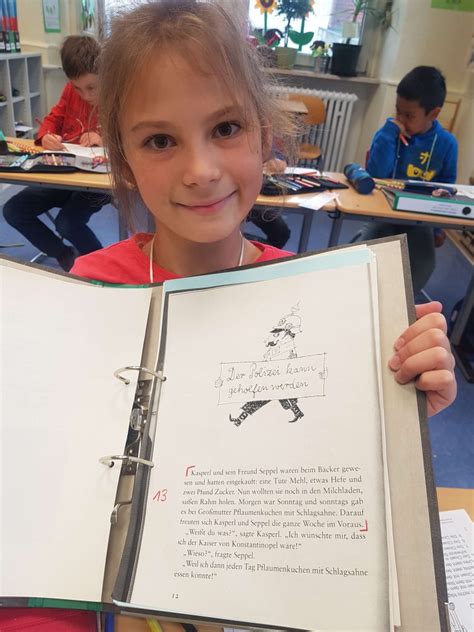 Der Polizei kann
geholfen werden
Kasperl und sein Freund Seppel waren beim Bäcker gewe-
sen und hatten eingekauft: eine Tüte Mehl, etwas Hefe und
zwei Pfund Zucker. Nun wollten sie noch in den Milchladen,
süßen Rahm holen. Morgen war Sonntag und sonntags gab
es bei Großmutter Pflaumenkuchen mit Schlagsahne. Darauf
freuten sich Kasperl und Seppel die ganze Woche im Voraus.
13
„Weißt du was?“, sagte Kasperl. „Ich wünschte mir, dass
ich der Kaiser von Konstantinopel wäre!“
„Wieso?“, fragte Seppel.
„Weil ich dann jeden Tag Pflaumenkuchen mit Schlagsahne
essen könnte!“
12